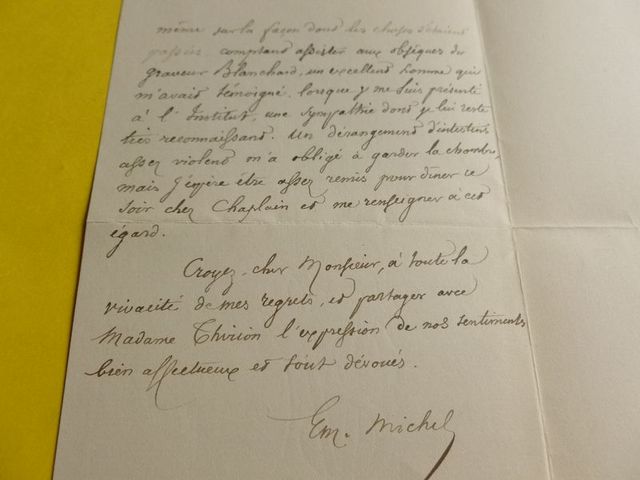 même sur la façon dont les choses s'étaient
passées comptant assister aux obsèques du
graveur Blanchard, un excellent homme qui
m'avait témoigné, lorsque je me suis présenté
à l'Institut, une sympathie dont je lui reste
très reconnaissant. Un dérangement d'intestins
assez violent m'a obligé à garder la chambre,
mais j'espère être assez remis pour diner ce
soir chez Chaplain et me renseigner à cet
égard.
Croyez, cher Monsieur, à toute la
vivacité de mes regrets, et partager avec
Madame Thirion l'expression de nos sentiments
bien affectueux et tout dévoués.
Em. Michel